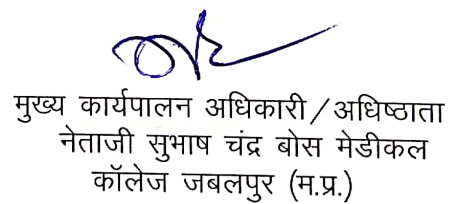 मुख्य कार्यपालन अधिकारी/अधिष्ठाता
नेताजी सुभाष चंद्र बोस मेडीकल
कॉलेज जबलपुर (म.प्र.)